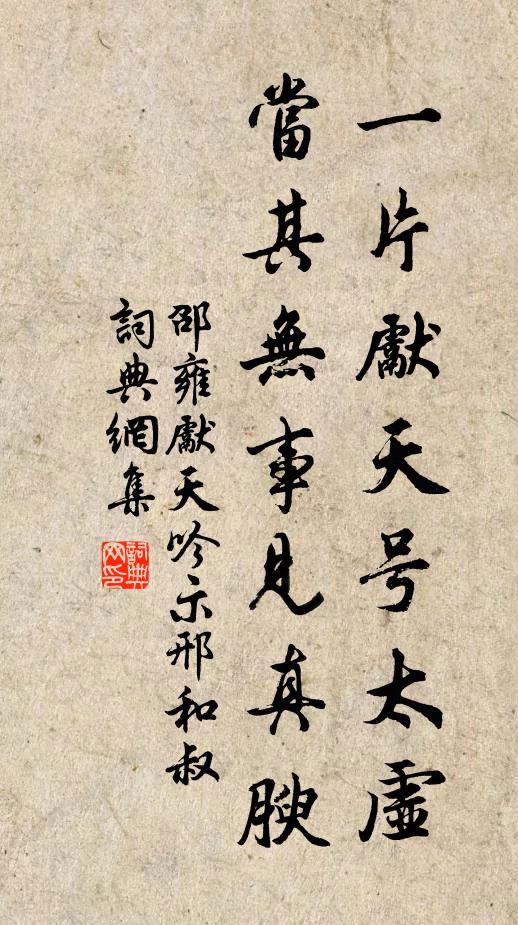 一片獻天号太虛
當其無事見真腴
邵雍獻天吟示邢和叔
詞典網集
詞典网印